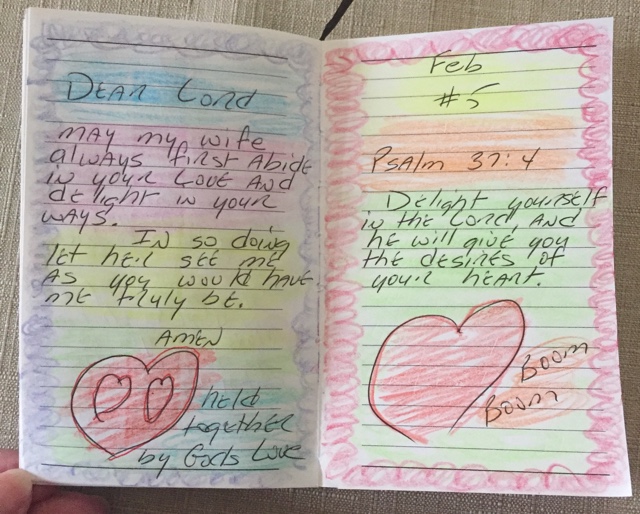 Dear Lord
may my wife
always first Abide
in your Love And
delight in your
ways.
In so doing
let her see me
As you would have
me truly be.
Amen
held
together
by Gods Love
Feb
#5
Psalm 37:4
Delight yourself
in the Lord, And
he will give you
the desires of
your heart.
Boom
Boom